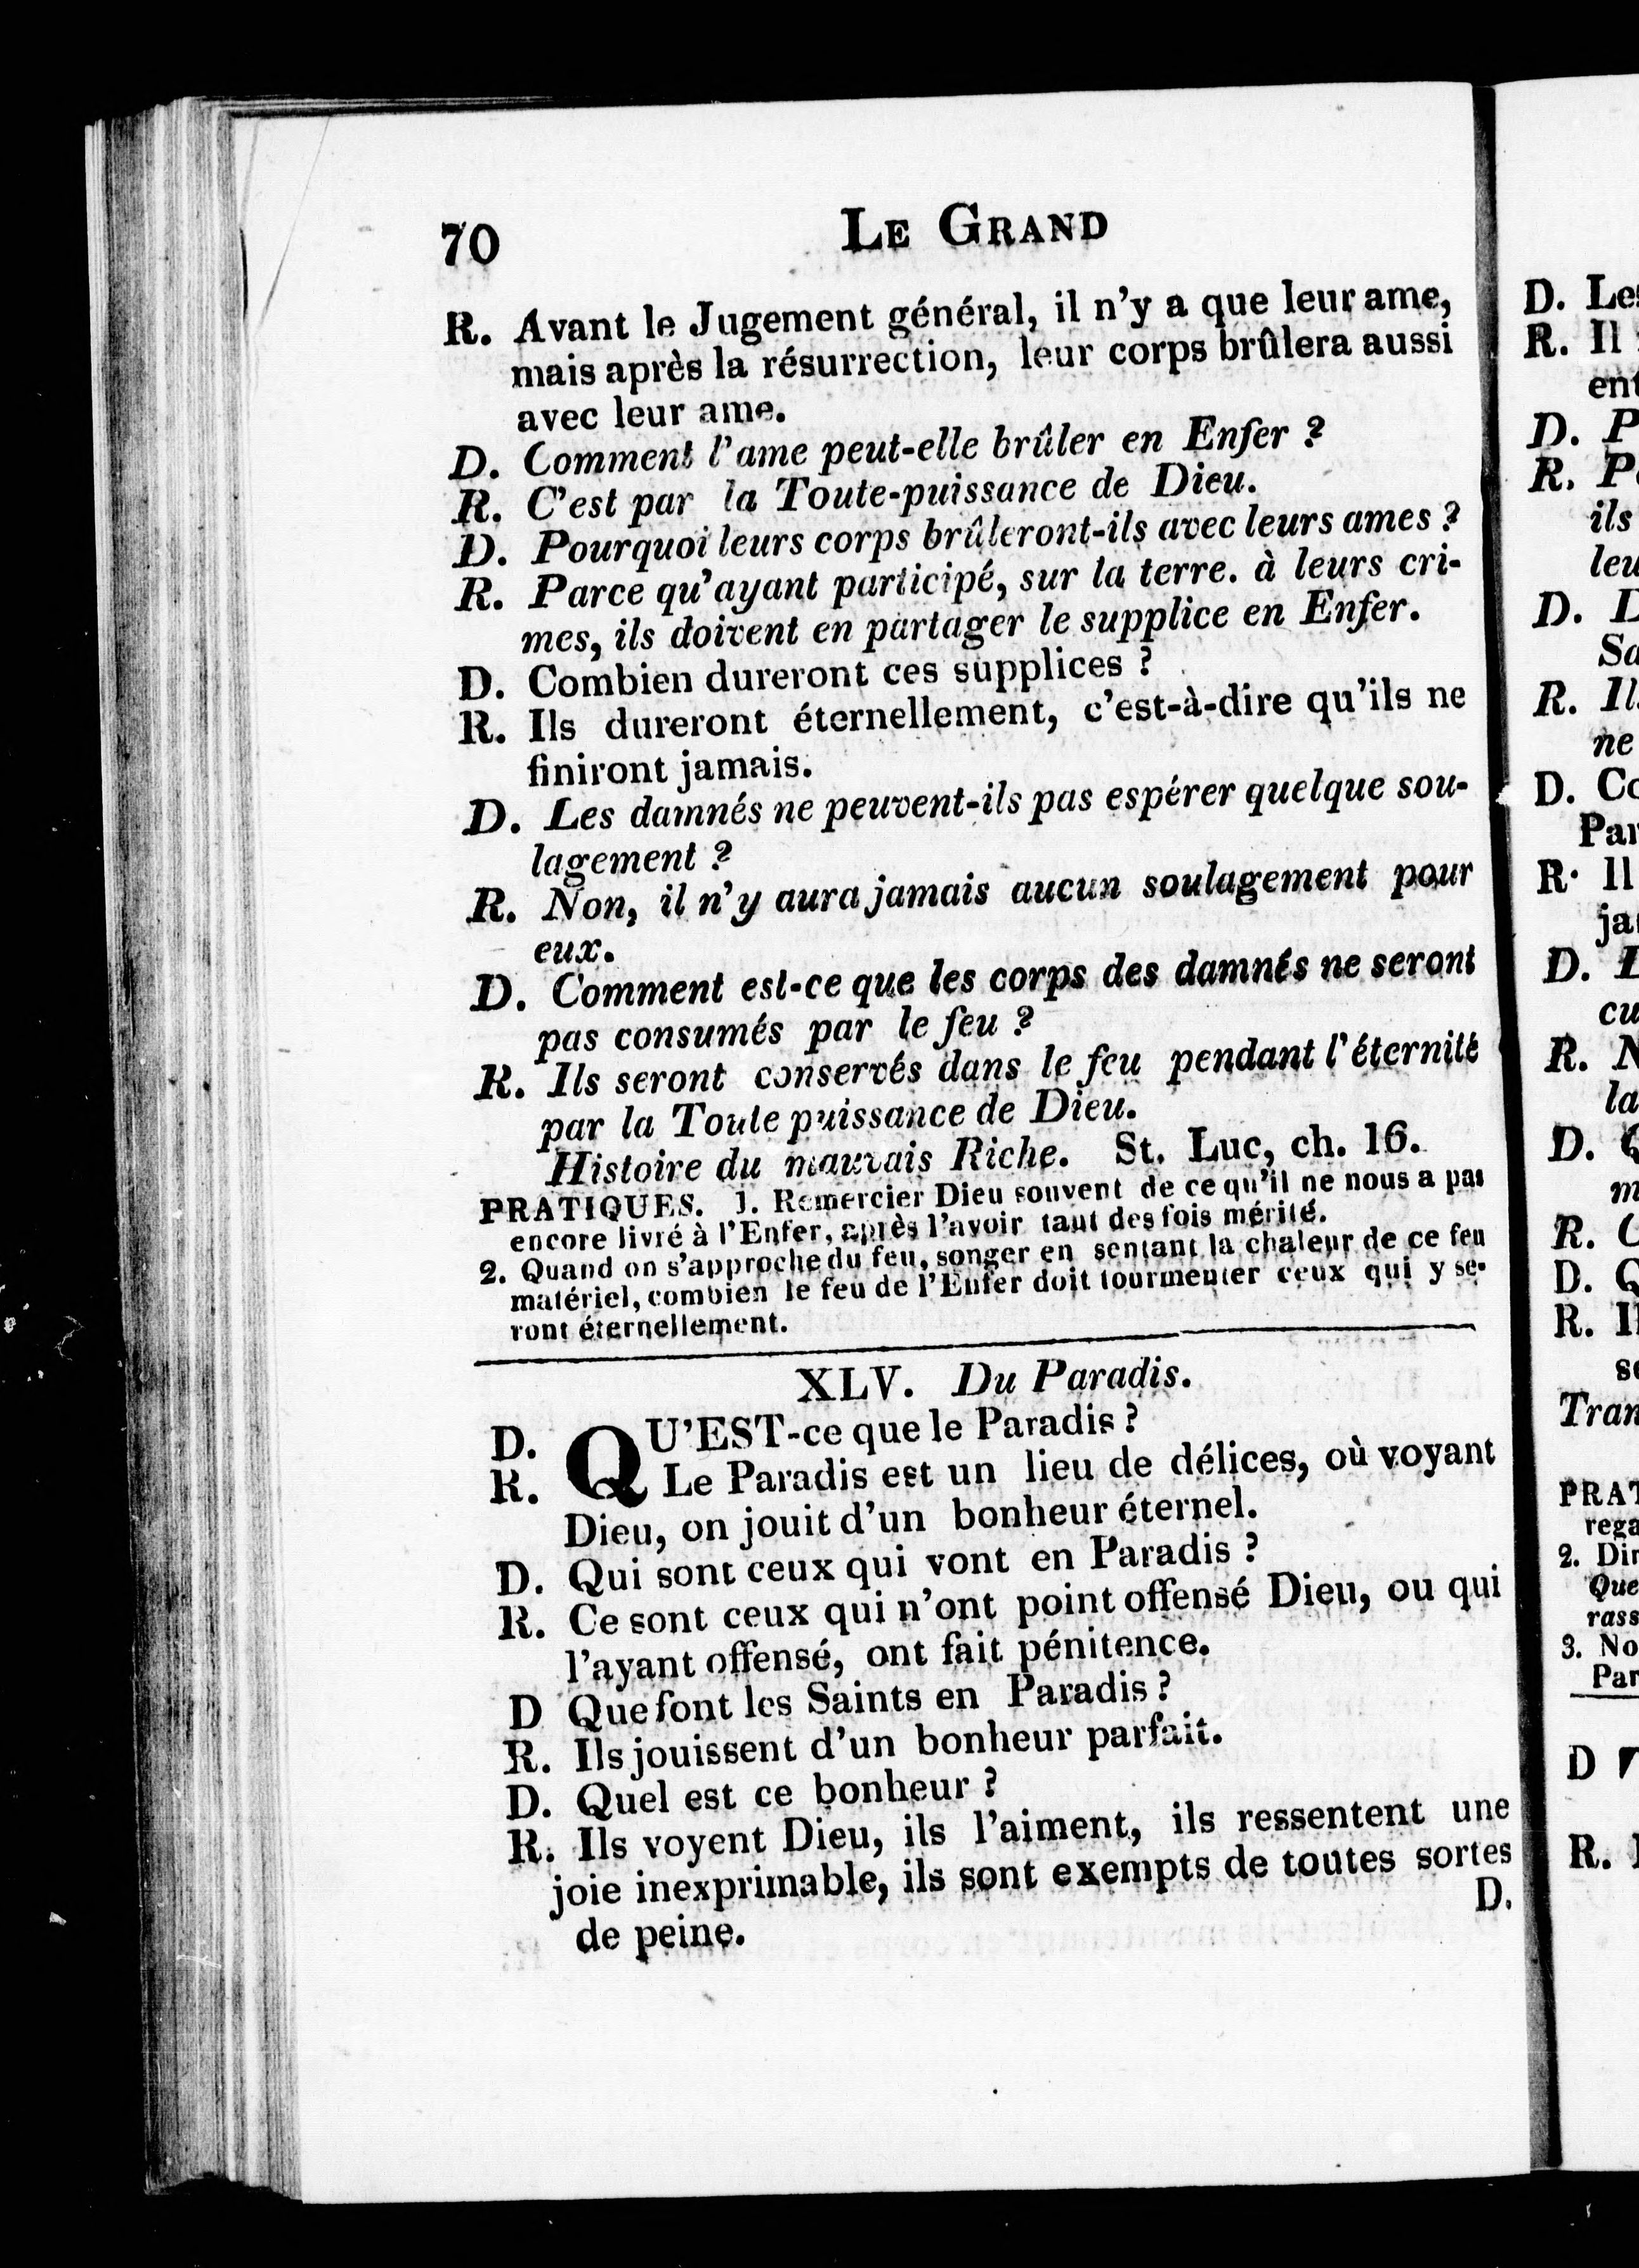 70 LE GRAND
R. Avant le Jugement général, il n'y a que leur ame,
mais après la résurrection, leur corps brûlera aussi
avec leur ame.
D. Comment l'ame peut-elle brûler en Enfer ?
R. C'est par la Toute-puissance de Dieu.
D. Pourquoi leurs corps brûleront-ils avec leurs ames ?
R. Parce qu'ayant participé, sur la terre. à leurs cri-
mes, ils doivent en partager le supplice en Enfer.
D. Combien dureront ces supplices ?
R. Ils dureront éternellement, c'est-à-dire qu'ils ne
finiront jamais.
D. Les damnés ne peuvent-ils pas espérer quelque sou-
lagement ?
R. Non, il n'y aura jamais aucun soulagement pour
eux.
D. Comment est-ce que les corps des damnés ne seront
pas consumés par le feu ?
R. Ils seront conservés dans le feu pendant l'éternité
par la Toute puissance de Dieu.
Histoire du mauvais Riche. St. Luc, ch. 16.
PRATIQUES. 1. Remercier Dieu souvent de ce qu'il ne nous a pas
encore livré à l'Enfer, après l'avoir tant des fois mérité.
2. Quand on s'approche du feu, songer en sentant la chaleur de ce feu
matériel, combien le feu de l'Enfer doit tourmenter ceux qui y se-
ront éternellement.
XLV. Du Paradis.
D. QU'EST-ce que le Paradis ?
R. Le Paradis est un lieu de délices, où voyant
Dieu, on jouit d'un bonheur éternel.
D. Qui sont ceux qui vont en Paradis ?
R. Ce sont ceux qui n'ont point offensé Dieu, ou qui
l'ayant offensé, ont fait pénitence.
D Que font les Saints en Paradis ?
R. Ils jouissent d'un bonheur parfait.
D. Quel est ce bonheur ?
R. Ils voyent Dieu, ils l'aiment, ils ressentent une
joie inexprimable, ils sont exempts de toutes sortes
de peine. D.
D.
R. Il
D.
R.
ils
D.
R.
ne
D.
R. Il
D.
R.
D.
R.
D.
R.
2.
3.
D
R.